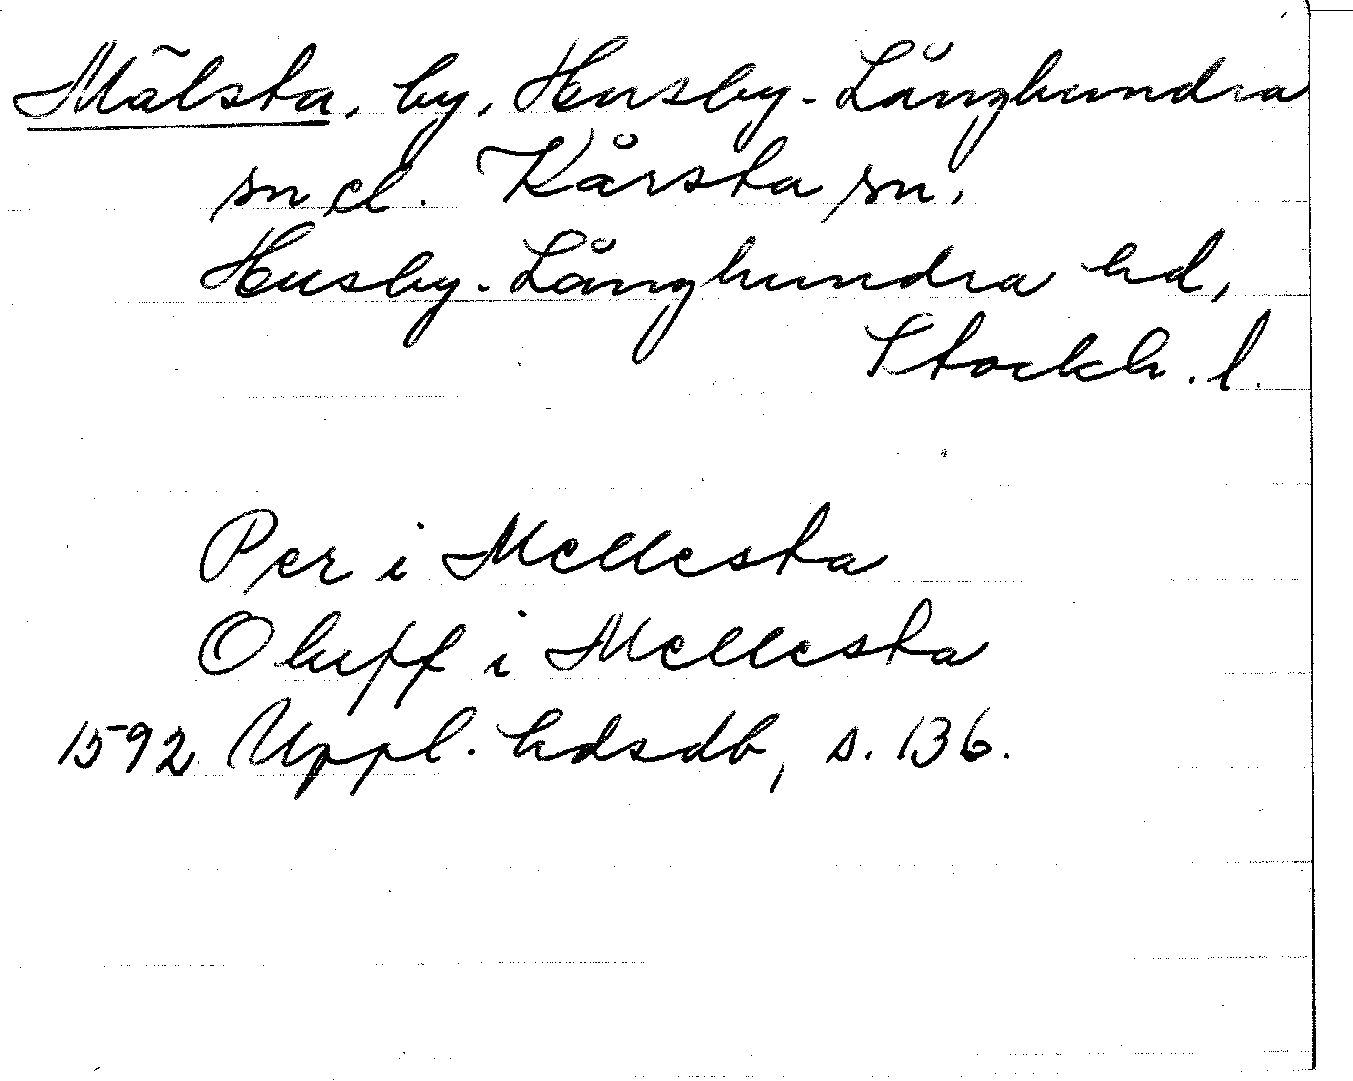 Mälsta, by, Husby-Långhundra
sn el. Kårsta sn,
Husby-Långhundra hd,
Stockh. l.
Per i Mellesta
Oluff i Mellesta
1592 Uppl. hdsdb, s. 136.